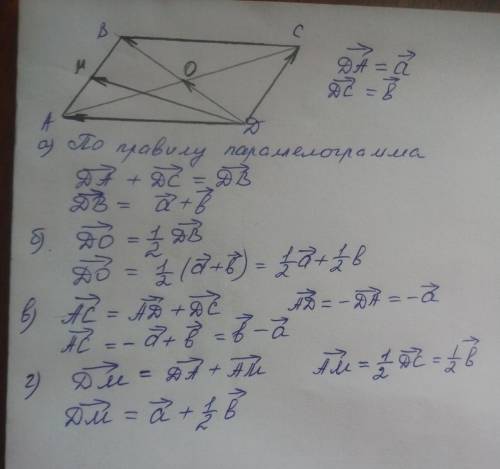 B C
M O
A D
D⃗A⃗ = a⃗
D⃗C⃗ = b⃗
а) По правилу параллелограмма
D⃗A⃗ + D⃗C⃗ = D⃗B⃗
D⃗B⃗ = a⃗ + b⃗
б) D⃗O⃗ = ½ D⃗B⃗
D⃗O⃗ = ½ (a⃗ + b⃗) = ½ a⃗ + ½ b
в) A⃗C⃗ = A⃗D⃗ + D⃗C⃗ A⃗D⃗ = -D⃗A⃗ = -a⃗
A⃗C⃗ = -a⃗ + b⃗ = b⃗ - a⃗
г) D⃗M⃗ = D⃗A⃗ + A⃗M⃗ A⃗M⃗ = ½ D⃗C⃗ = ½ b⃗
D⃗M⃗ = a⃗ + ½ b⃗